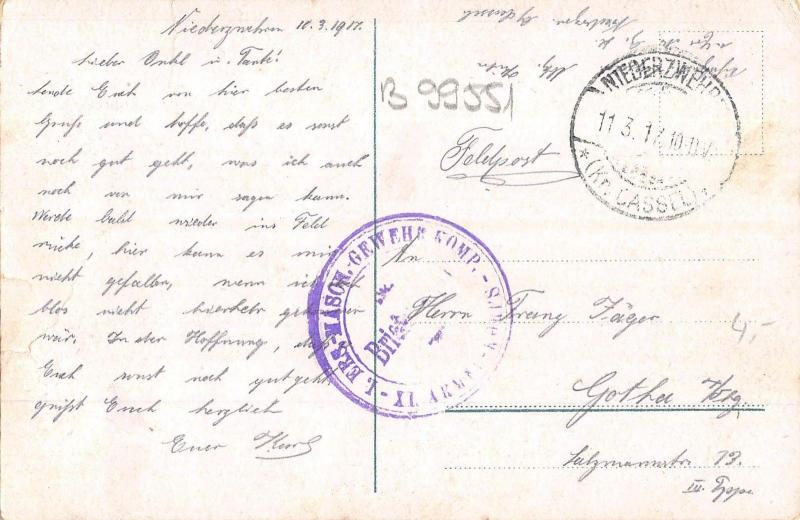 Niederzwehren 10.3.1917.
Lieber Onkel u. Tante!
sende Euch von hier besten
Gruß und hoffe, daß es sonst
noch gut geht, was ich auch
noch von mir sagen kann.
Werde bald wieder ins Feld
rücke, hier kann es mir
nicht gefallen, wenn ich
blos nicht hierher gekommen
wär. In der Hoffnung, daß
Euch sonst noch gut geht
grüßt Euch herzlich
Euer Karl
B 99551
Feldpost
NIEDERZWEHR
11.3.17.10-11V
* (Kr. CASSEL) *
I. ERS.-MASCH.-GEWEHR KOMP. - XI ARMEE
Brief
An
Herrn Franz Jäger
Gotha
Salzmannstr. 13.
III. Tppe
4,-